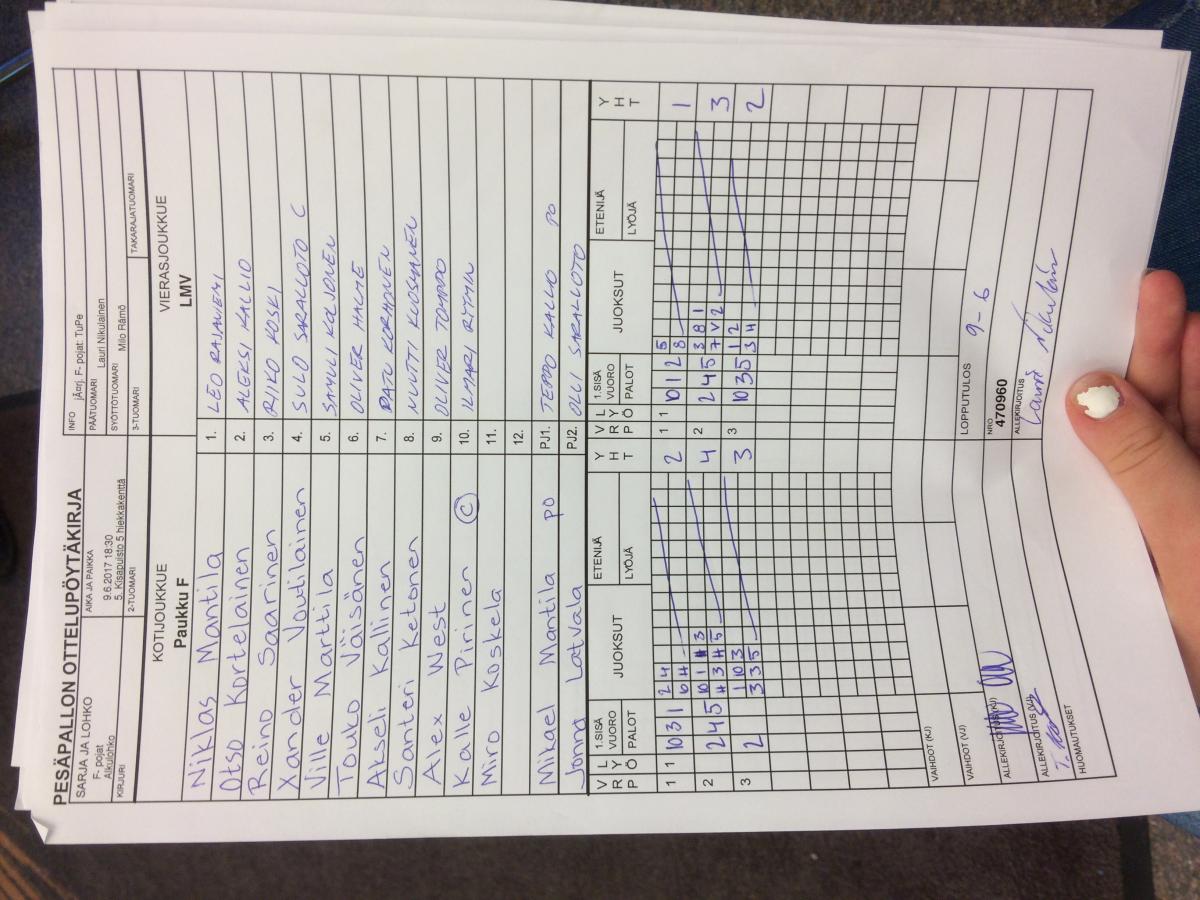 PESÄPALLON OTTELUPÖYTÄKIRJA
SARJA JA LOHKO
F- pojat
Alkulohko
AIKA JA PAIKKA
9.6.2017 18:30
5. Kisapuisto 5 hiekkakenttä
INFO jÃ¤rj. F- pojat: TuPe
PÄÄTUOMARI Lauri Nikulainen
SYÖTTÖTUOMARI Milo Rämö
KIRJURI
2-TUOMARI
3-TUOMARI
TAKARAJATUOMARI
KOTIJOUKKUE
Paukku F
VIERASJOUKKUE
LMV
Niklas Mantila 1. LEO RAJANIEMI
Otso Kortelainen 2. ALEKSI KALLIO
Reino Saarinen 3. RIIKO KOSKI
Xander Voutilainen 4. SULO SARALLOTO C
Ville Marttila 5. SAMULI KOLJONEN
Touko Väisänen 6. OLIVER HALME
Akseli Kallinen 7. KORHONEN
Santeri Ketonen 8. NUUTTI KUOSMANEN
Alex West 9. OLIVER
Kalle Pirinen C 10. ILMARI
Miro Koskela 11.
12.
Mikael Mantila PO PJ1. TEPPO KALLIO PO
Jonna Latvala PJ2. OLLI SARALLOTO
V R P L Y Ö 1.SISÄ VUORO PALOT JUOKSUT ETENIJÄ LYÖJÄ Y H T V R P L Y Ö 1.SISÄ VUORO PALOT JUOKSUT ETENIJÄ LYÖJÄ Y H T
1 1 10 3 1 2 4 2 1 1 10 1 2 5 1
6 4 8
2 2 4 5 10 1 4 3 4 2 2 4 5 3 8 1 3
4 3 4 5 7 V 2
3 2 1 10 3 3 3 10 3 5 1 2 2
3 3 5 3 4
VAIHDOT (KJ)
VAIHDOT (VJ)
LOPPUTULOS 9 - 6
ALLEKIRJOITUS (KJ)
NRO
470960
ALLEKIRJOITUS (VJ)
ALLEKIRJOITUS
HUOMAUTUKSET